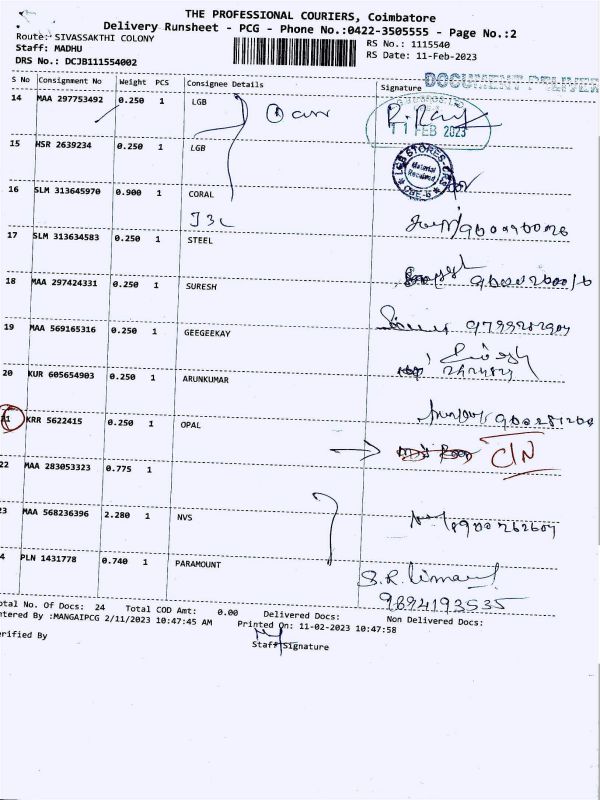 THE PROFESSIONAL COURIERS, Coimbatore
Delivery Runsheet - PCG - Phone No.:0422-3505555 - Page No.:2
Route: SIVASSAKTHI COLONY
RS No.: 1115540
Staff: MADHU
RS Date: 11-Feb-2023
DRS No.: DCJB111554002
DOCUMENT DELIVER
S No Consignment No Weight PCS Consignee Details Signature
14 MAA 297753492 0.250 1 LGB
11 FEB 2023
15 HSR 2639234 0.250 1 LGB
LGB STORES-CBE
Material Received
CBE-6
16 SLM 313645970 0.900 1 CORAL
17 SLM 313634583 0.250 1 STEEL
18 MAA 297424331 0.250 1 SURESH
9799282904
19 MAA 569165316 0.250 1 GEEGEEKAY
20 KUR 605654903 0.250 1 ARUNKUMAR
21 KRR 5622415 0.250 1 OPAL
C/N
22 MAA 283053323 0.775 1
23 MAA 568236396 2.280 1 NVS
4 PLN 1431778 0.740 1 PARAMOUNT
9894193535
otal No. Of Docs: 24 Total COD Amt: 0.00 Delivered Docs: Non Delivered Docs:
ntered By :MANGAIPCG 2/11/2023 10:47:45 AM Printed On: 11-02-2023 10:47:58
erified By
Staff Signature